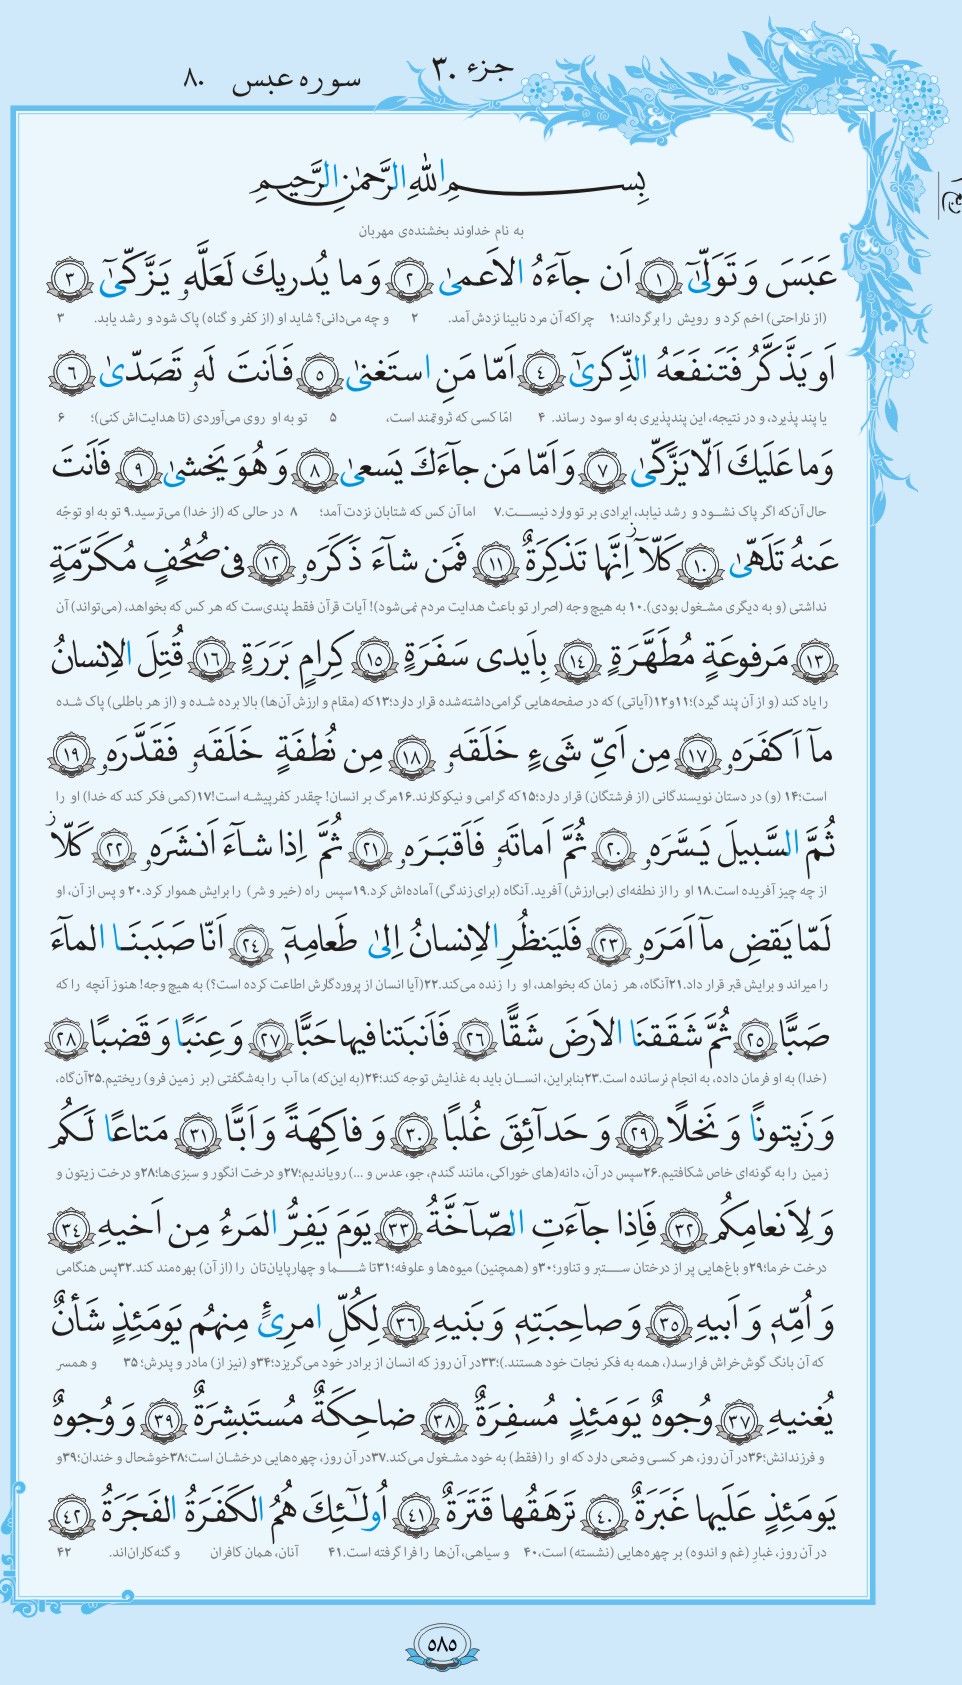 جزء ۳۰
سوره عبس ۸۰
بِسمِ اللهِ الرَّحمٰنِ الرَّحیمِ
به نام خداوند بخشنده‌ی مهربان
عَبَسَ وَ تَوَلّیٰٓ ﴿١﴾ اَن جآءَهُ الاَعمیٰ ﴿٢﴾ وَ ما یُدریكَ لَعَلَّهٗ یَزَّكّیٰٓ ﴿٣﴾
(از ناراحتی) اخم کرد و رویش را برگرداند؛۱ چراکه آن مرد نابینا نزدش آمد. ۲ و چه می‌دانی؟ شاید او (از کفر و گناه) پاک شود و رشد یابد. ۳
اَو یَذَّكَّرُ فَتَنفَعَهُ الذِّكریٰٓ ﴿٤﴾ اَمّا مَنِ استَغنیٰ ﴿٥﴾ فَاَنتَ لَهٗ تَصَدّیٰ ﴿٦﴾
یا پند پذیرد، و در نتیجه، این پندپذیری به او سود رساند. ۴ امّا کسی که ثروتمند است، ۵ تو به او روی می‌آوردی (تا هدایت‌اش کنی)؛ ۶
وَ ما عَلَیكَ اَلّا یَزَّكّیٰ ﴿٧﴾ وَ اَمّا مَن جآءَكَ یَسعیٰ ﴿٨﴾ وَ هُوَ یَخشیٰ ﴿٩﴾ فَاَنتَ
حال آن‌که اگر پاک نشود و رشد نیابد، ایرادی بر تو وارد نیست.۷ اما آن کس که شتابان نزدت آمد؛ ۸ در حالی که (از خدا) می‌ترسید.۹ تو به او توجّه
عَنهُ تَلَهّیٰ ﴿١٠﴾ كَلّآ ز اِنَّها تَذكِرَةٌ ﴿١١﴾ فَمَن شآءَ ذَكَرَهٗ ﴿١٢﴾ فی صُحُفٍ مُكَرَّمَةٍ
نداشتی (و به دیگری مشغول بودی).۱۰ به هیچ وجه (اصرار تو باعث هدایت مردم نمی‌شود)! آیات قرآن فقط پندی‌ست که هر کس که بخواهد، (می‌تواند) آن
﴿١٣﴾ مَرفوعَةٍ مُطَهَّرَةٍ ﴿١٤﴾ بِاَیدی سَفَرَةٍ ﴿١٥﴾ كِرامٍ بَرَرَةٍ ﴿١٦﴾ قُتِلَ الاِنسانُ
را یاد کند (و از آن پند گیرد)؛۱۱و۱۲(آیاتی) که در صفحه‌هایی گرامی‌داشته‌شده قرار دارد؛۱۳که (مقام و ارزش آن‌ها) بالا برده شده و (از هر باطلی) پاک شده
مآ اَكفَرَهٗ ﴿١٧﴾ مِن اَیِّ شَیءٍ خَلَقَهٗ ﴿١٨﴾ مِن نُطفَةٍ خَلَقَهٗ فَقَدَّرَهٗ ﴿١٩﴾
است؛۱۴ (و) در دستان نویسندگانی (از فرشتگان) قرار دارد؛۱۵که گرامی و نیکوکارند.۱۶مرگ بر انسان! چقدر کفرپیشه است!۱۷(کمی فکر کند که خدا) او را
ثُمَّ السَّبیلَ یَسَّرَهٗ ﴿٢٠﴾ ثُمَّ اَماتَهٗ فَاَقبَرَهٗ ﴿٢١﴾ ثُمَّ اِذا شآءَ اَنشَرَهٗ ﴿٢٢﴾ كَلّا ز
از چه چیز آفریده است.۱۸ او را از نطفه‌ای (بی‌ارزش) آفرید. آنگاه (برای زندگی) آماده‌اش کرد.۱۹سپس راه (خیر و شر) را برایش هموار کرد.۲۰ و پس از آن، او
لَمّا یَقضِ مآ اَمَرَهٗ ﴿٢٣﴾ فَلیَنظُرِ الاِنسانُ اِلیٰ طَعامِهٖٓ ﴿٢٤﴾ اَنّا صَبَبنَا المآءَ
را میراند و برایش قبر قرار داد.۲۱آنگاه، هر زمان که بخواهد، او را زنده می‌کند.۲۲(آیا انسان از پروردگارش اطاعت کرده است؟) به هیچ وجه! هنوز آنچه را که
صَبًّا ﴿٢٥﴾ ثُمَّ شَقَقنَا الاَرضَ شَقًّا ﴿٢٦﴾ فَاَنبَتنا فیها حَبًّا ﴿٢٧﴾ وَ عِنَبًا وَ قَضبًا ﴿٢٨﴾
(خدا) به او فرمان داده، به انجام نرسانده است.۲۳بنابراین، انسان باید به غذایش توجه کند؛۲۴(به این‌که) ما آب را به‌شگفتی (بر زمین فرو) ریختیم.۲۵آن‌گاه،
وَ زَیتونًا وَ نَخلًا ﴿٢٩﴾ وَ حَدآئِقَ غُلبًا ﴿٣٠﴾ وَ فاكِهَةً وَ اَبًّا ﴿٣١﴾ مَتاعًا لَكُم
زمین را به گونه‌ای خاص شکافتیم.۲۶سپس در آن، دانه(های خوراکی، مانند گندم، جو، عدس و ...) رویاندیم؛۲۷و درخت انگور و سبزی‌ها؛۲۸و درخت زیتون و
وَ لِاَنعامِكُم ﴿٣٢﴾ فَاِذا جآءَتِ الصّآخَّةُ ﴿٣٣﴾ یَومَ یَفِرُّ المَرءُ مِن اَخیهِ ﴿٣٤﴾
درخت خرما؛۲۹و باغ‌هایی پر از درختان ستبر و تناور؛۳۰و (همچنین) میوه‌ها و علوفه؛۳۱تا شما و چهارپایان‌تان را (از آن) بهره‌مند کند.۳۲پس هنگامی
وَ اُمِّهٖ وَ اَبیهِ ﴿٣٥﴾ وَ صاحِبَتِهٖ وَ بَنیهِ ﴿٣٦﴾ لِكُلِّ امرِئٍ مِنهُم یَومَئِذٍ شَأنٌ
که آن بانگ گوش‌خراش فرارسد(، همه به فکر نجات خود هستند.)؛۳۳در آن روز که انسان از برادر خود می‌گریزد؛۳۴و (نیز از) مادر و پدرش؛ ۳۵ و همسر
یُغنیهِ ﴿٣٧﴾ وُجوهٌ یَومَئِذٍ مُسفِرَةٌ ﴿٣٨﴾ ضاحِكَةٌ مُستَبشِرَةٌ ﴿٣٩﴾ وَ وُجوهٌ
و فرزندانش؛۳۶در آن روز، هر کسی وضعی دارد که او را (فقط) به خود مشغول می‌کند.۳۷در آن روز، چهره‌هایی درخشان است؛۳۸خوشحال و خندان؛۳۹و
یَومَئِذٍ عَلَیها غَبَرَةٌ ﴿٤٠﴾ تَرهَقُها قَتَرَةٌ ﴿٤١﴾ اُولٰٓئِكَ هُمُ الكَفَرَةُ الفَجَرَةُ ﴿٤٢﴾
در آن روز، غبارِ (غم و اندوه) بر چهره‌هایی (نشسته) است،۴۰ و سیاهی، آن‌ها را فرا گرفته است.۴۱ آنان، همان کافران و گنه‌کاران‌اند. ۴۲
۵۸۵